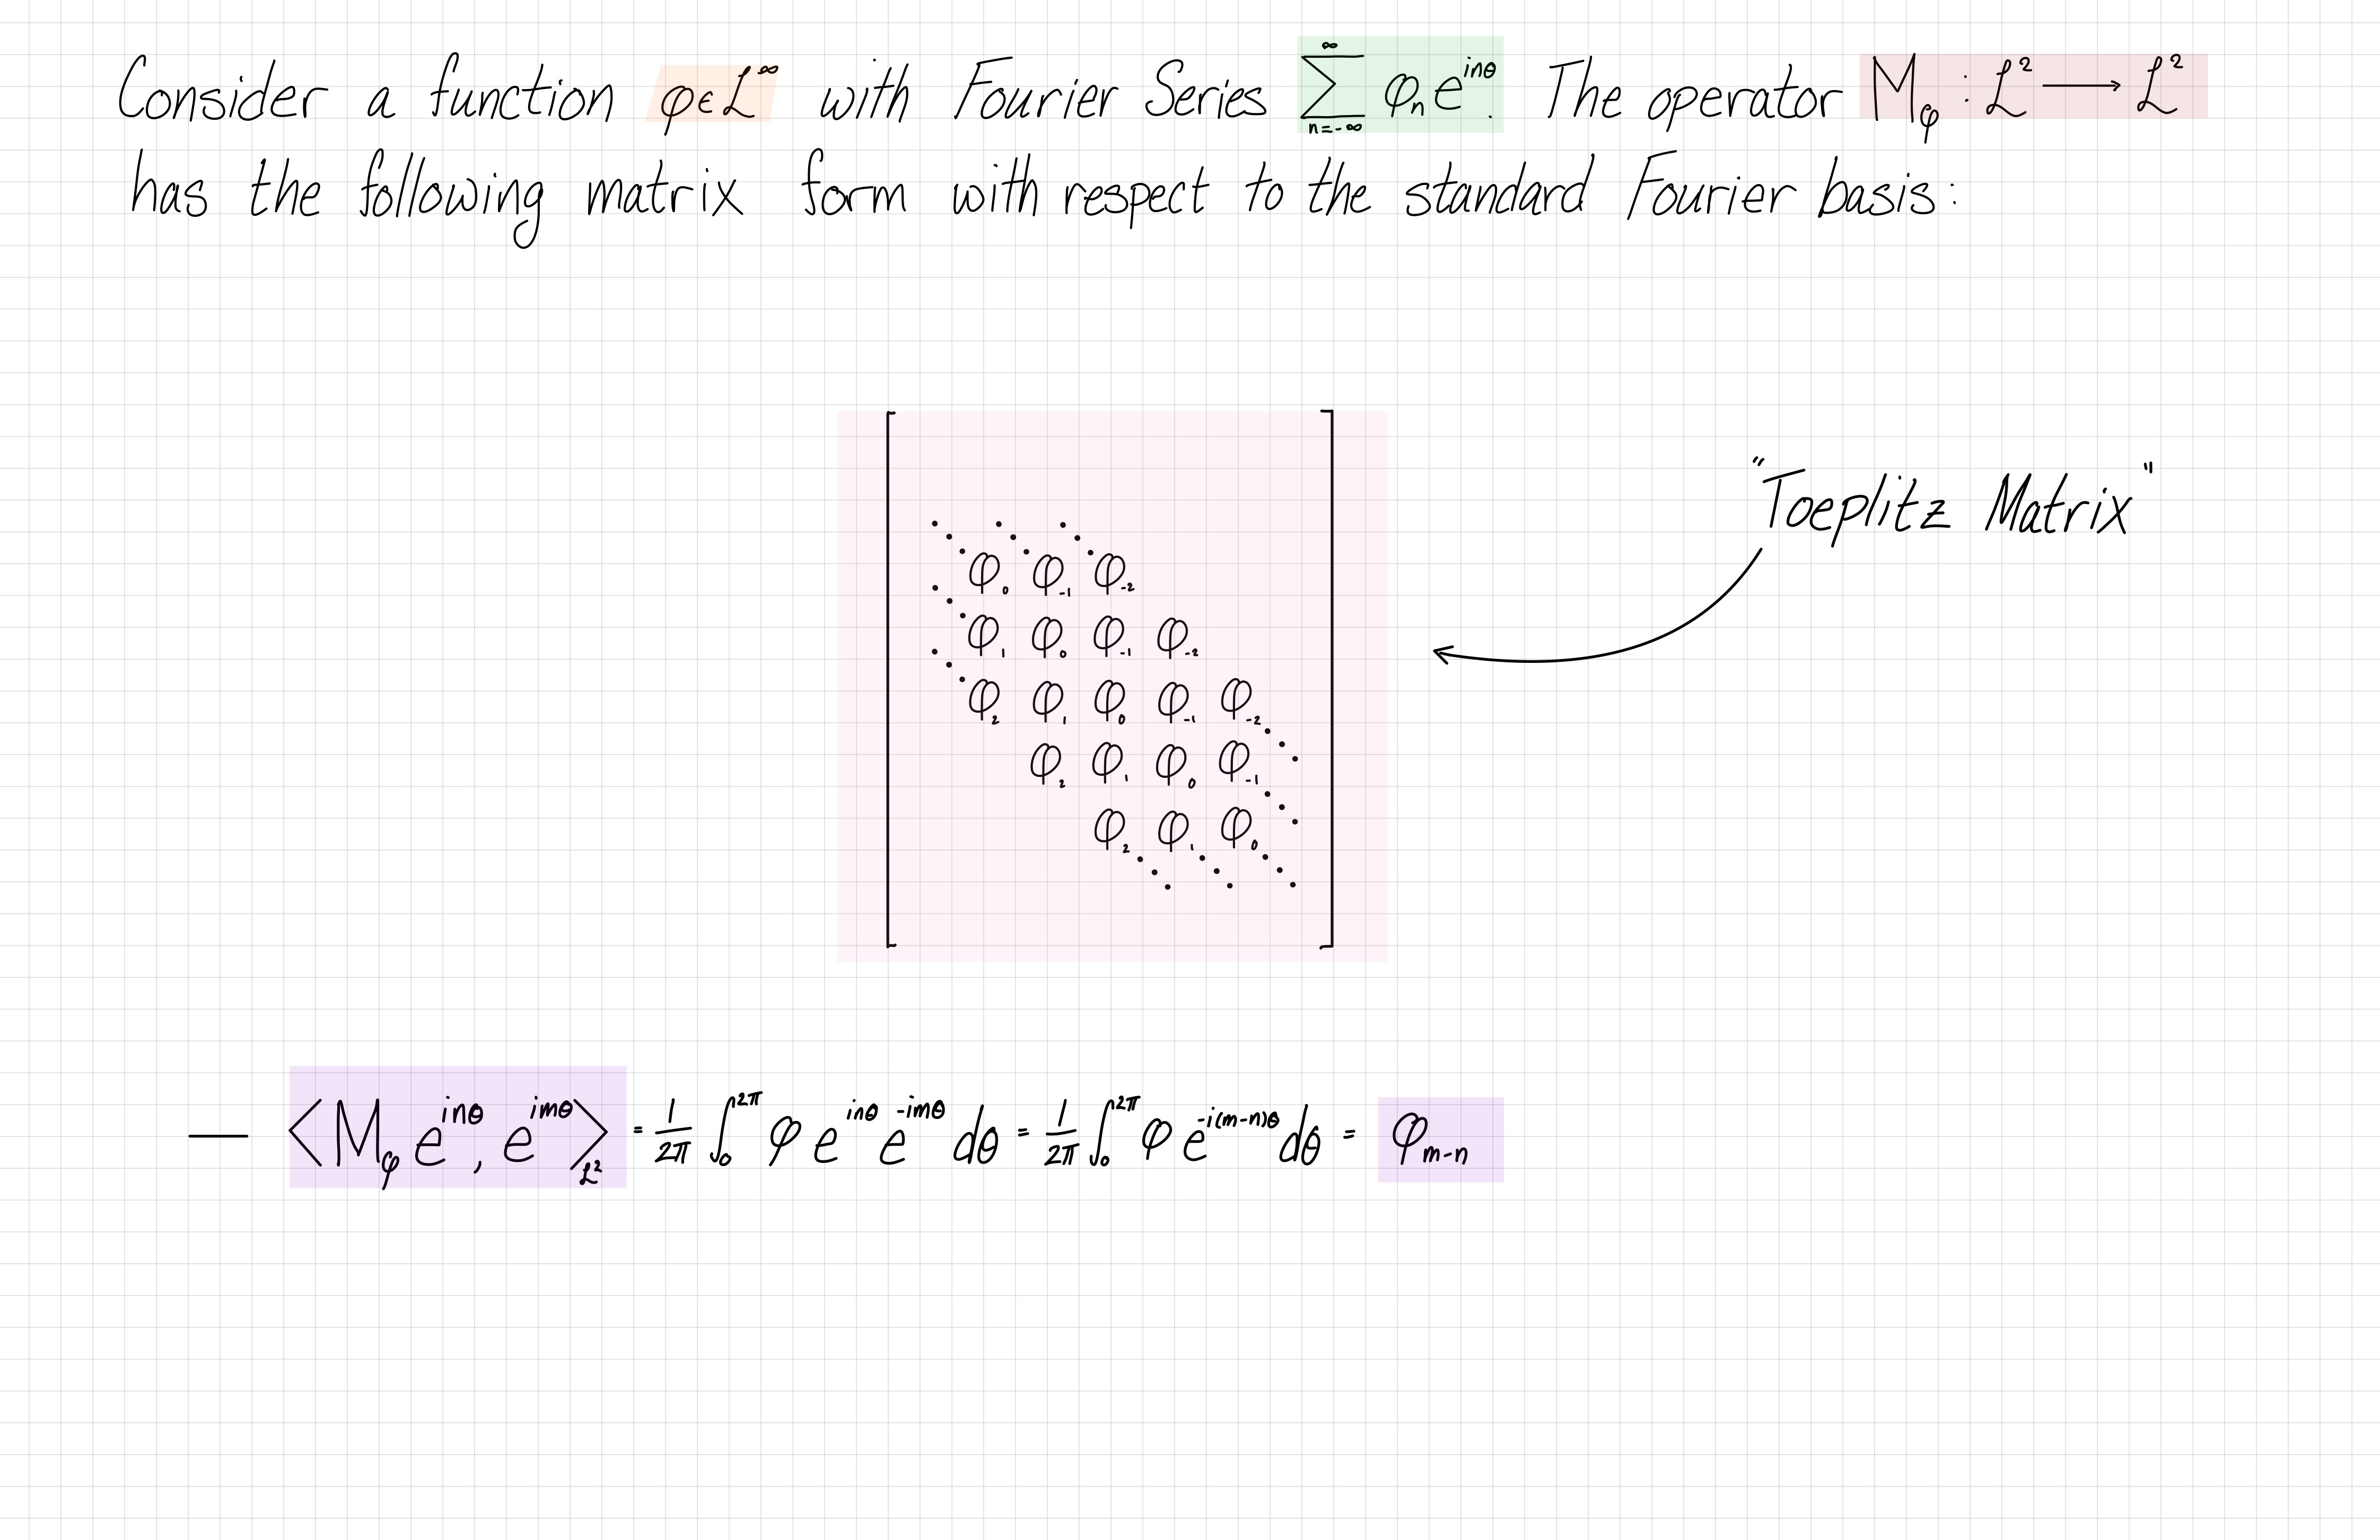 Consider a function φ ∈ L^∞ with Fourier Series ∑_{n=-∞}^{∞} φ_n e^{inθ}. The operator M_φ : L² ⟶ L²
has the following matrix form with respect to the standard Fourier basis:
"Toeplitz Matrix"
⋱ ⋱ ⋱
⋱ φ_0 φ_{-1} φ_{-2}
⋱ φ_1 φ_0 φ_{-1} φ_{-2}
φ_2 φ_1 φ_0 φ_{-1} φ_{-2} ⋱
φ_2 φ_1 φ_0 φ_{-1} ⋱
φ_2 φ_1 φ_0 ⋱
⋱ ⋱
— ⟨M_φ e^{inθ}, e^{imθ}⟩_{L²} = 1/2π ∫_0^{2π} φ e^{inθ} e^{-imθ} dθ = 1/2π ∫_0^{2π} φ e^{-i(m-n)θ} dθ = φ_{m-n}